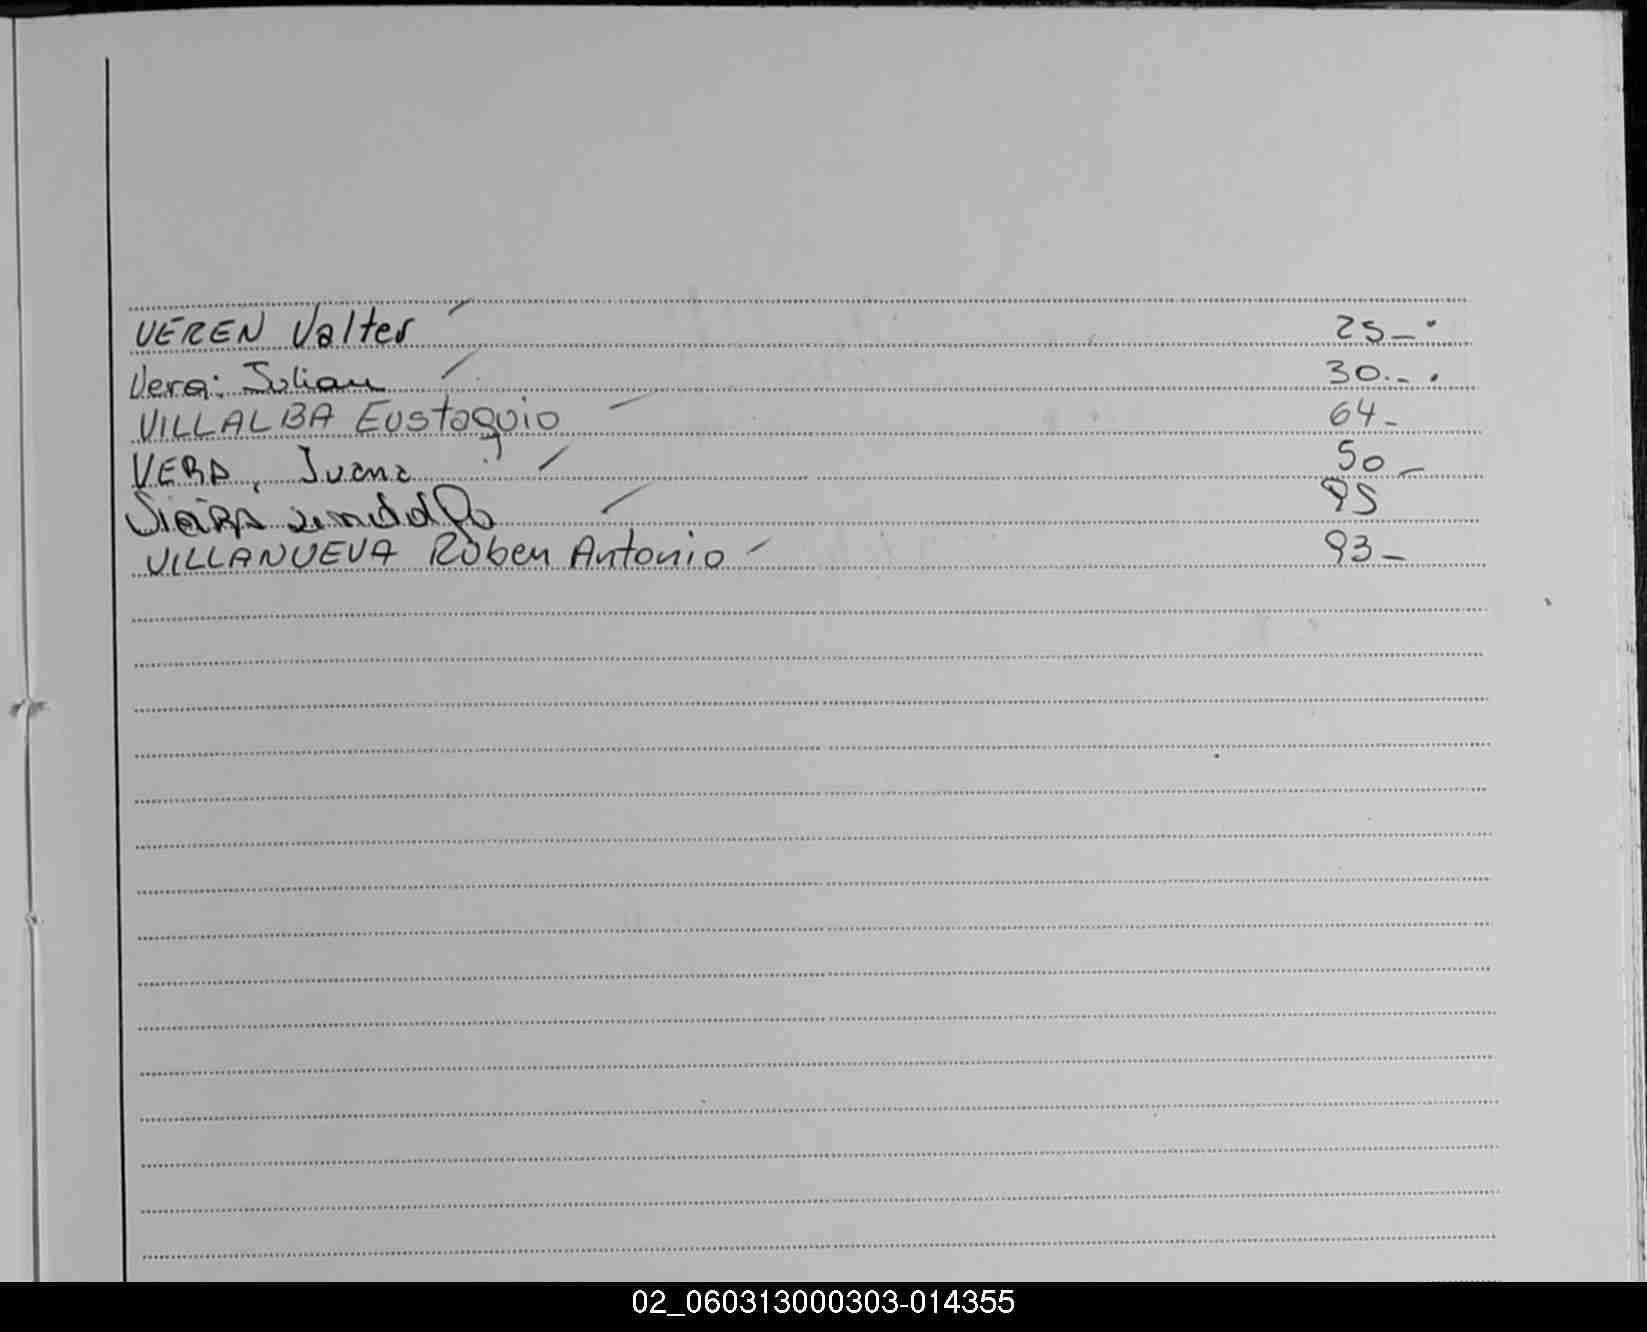 VEREN Valter 25_.
Vera: Julian 30._.
VILLALBA Eustaquio 64_
VERA, Juana 50_
95
VILLANUEVA Ruben Antonio 93_
02_060313000303-014355